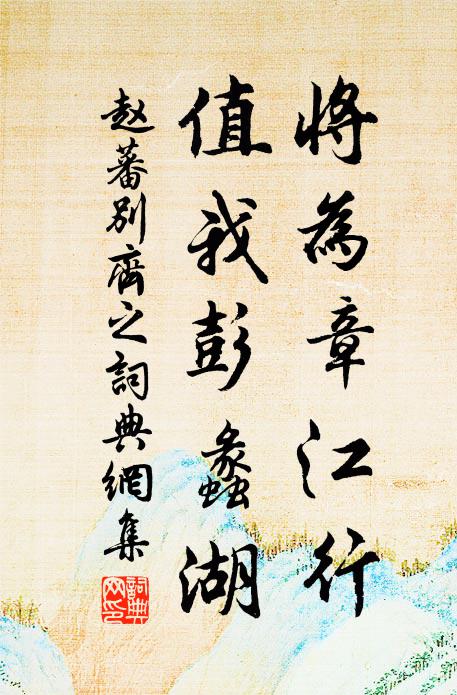 將為章江行
值我彭蠡湖
赵蕃别齊之詞典網集
詞典網印